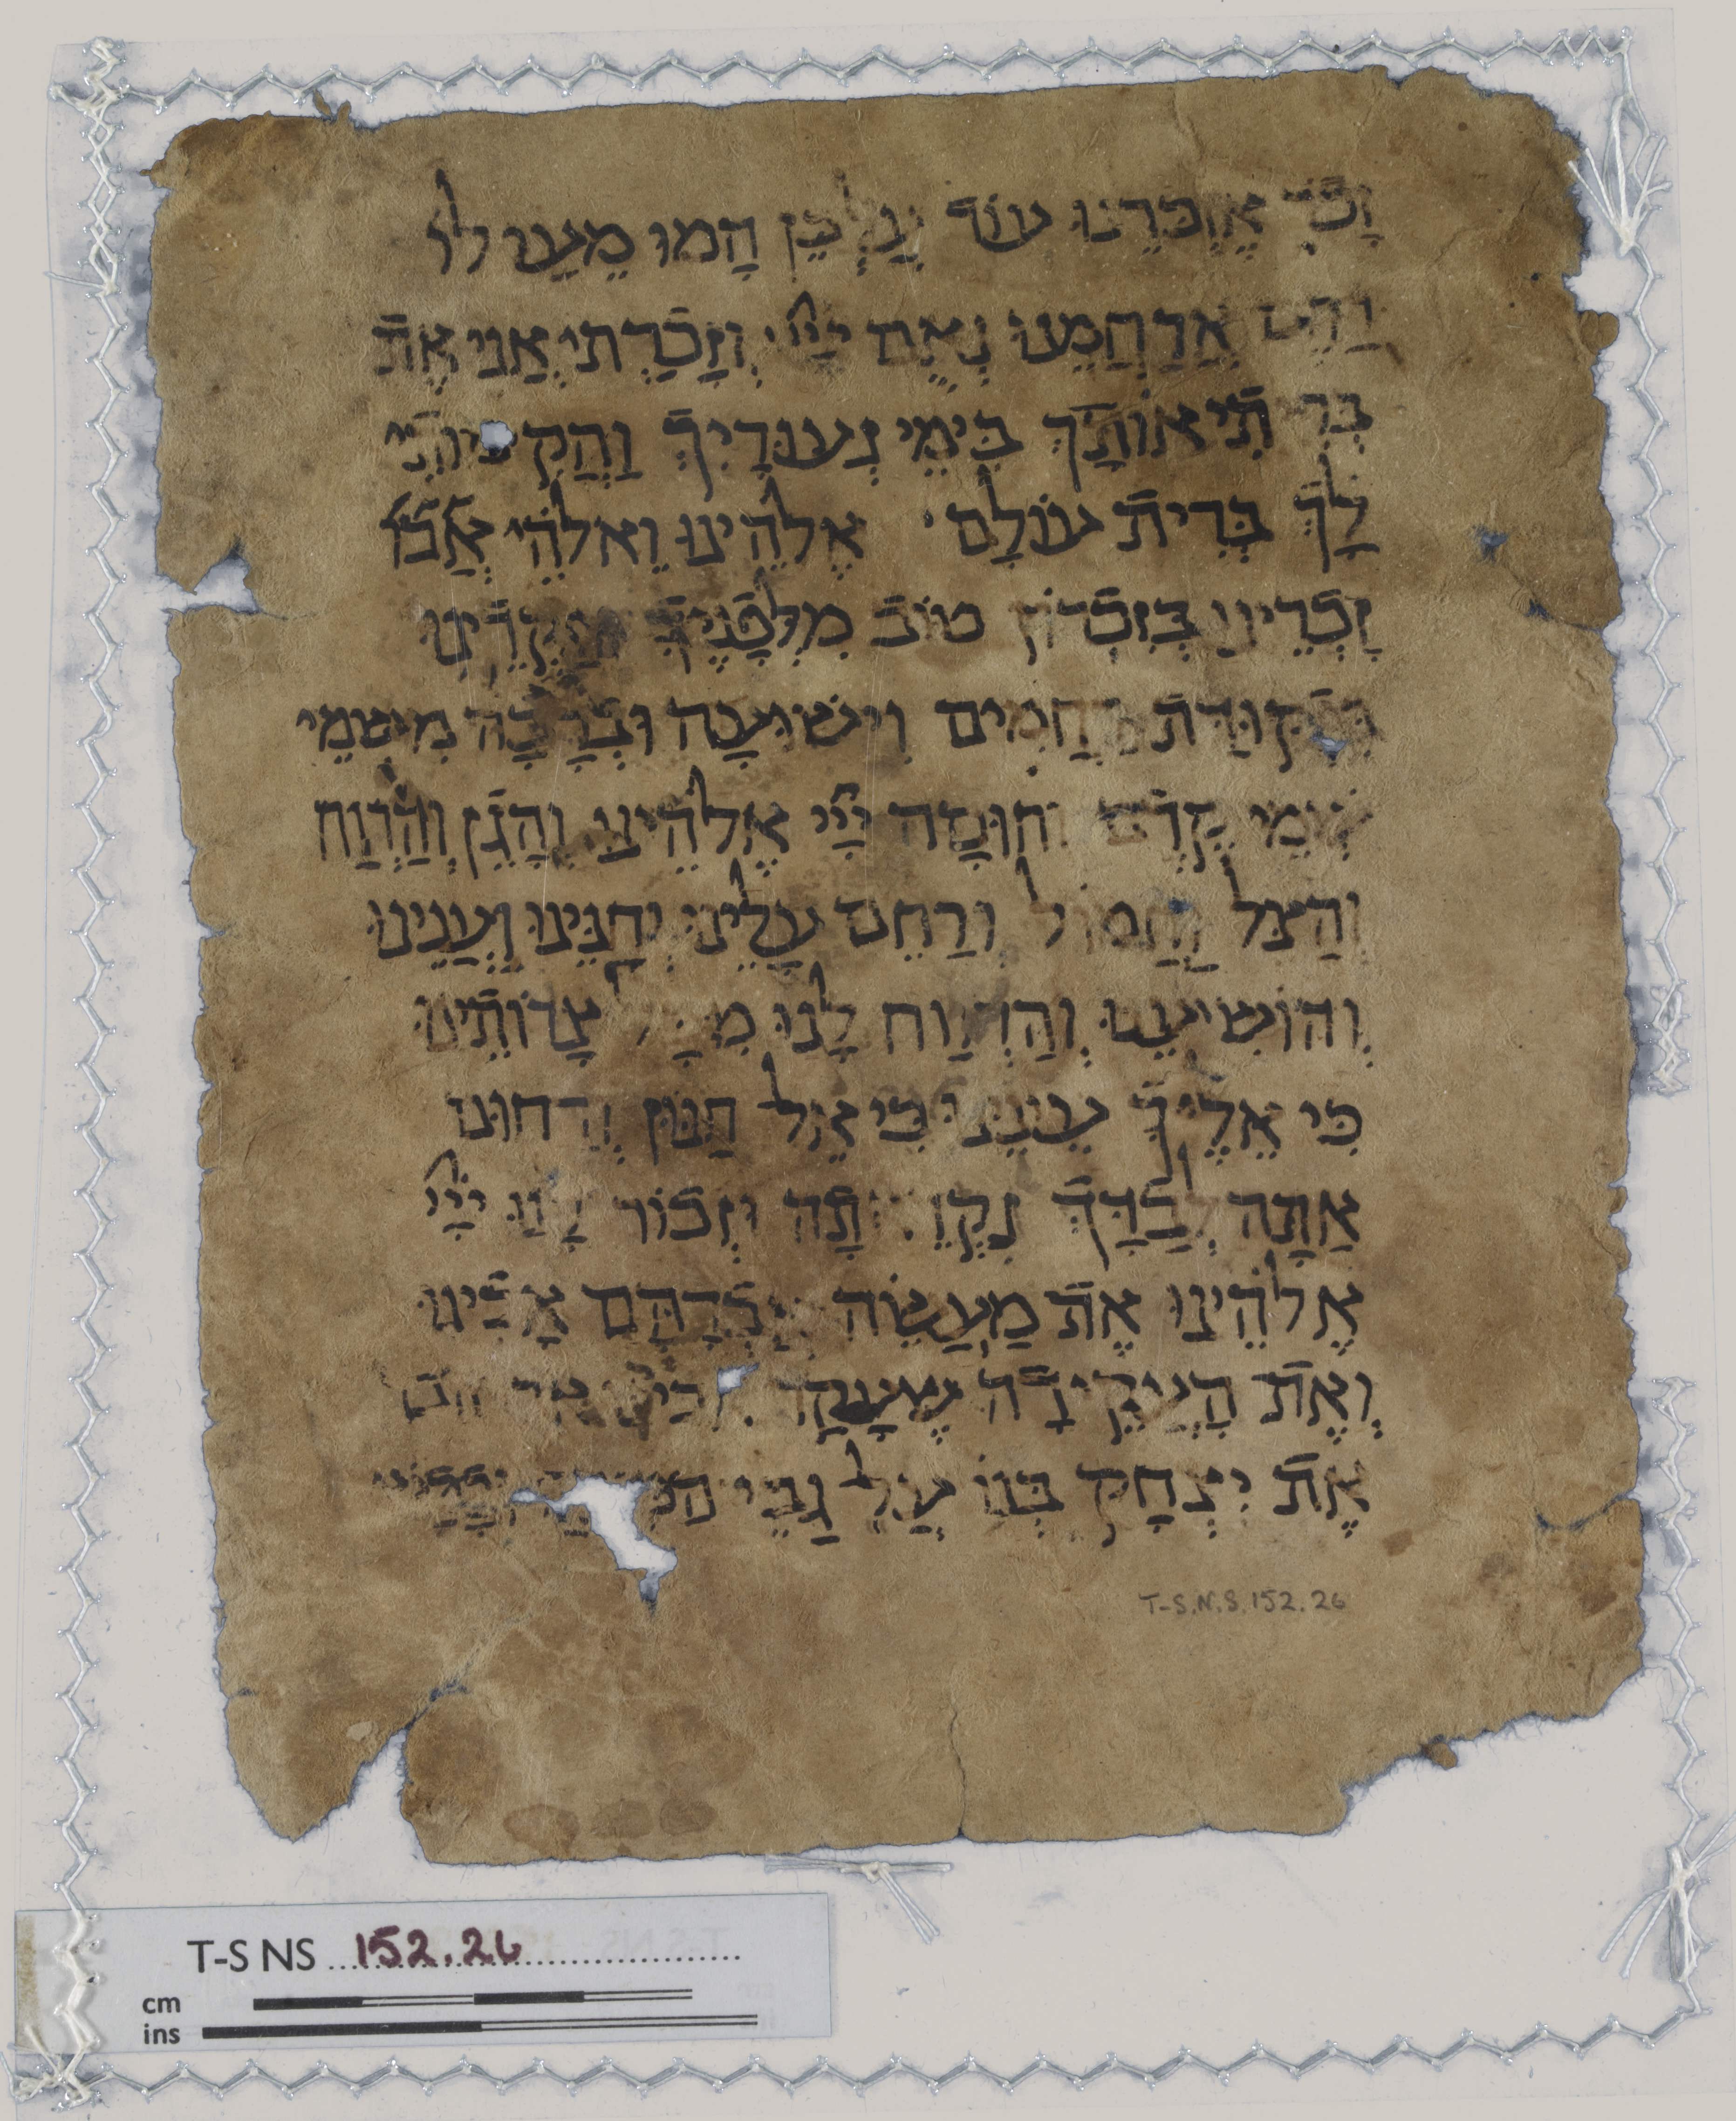 זָכֹר אֶזְכְּרֶנּוּ עוֹד עַל כֵּן הָמוּ מֵעַי לוֹ
אֲרַחֲמֶנּוּ נְאֻם יְיָ וְזָכַרְתִּי אֲנִי אֶת
בְּרִיתִי אוֹתָךְ בִּימֵי נְעוּרָיִךְ וַהֲקִימוֹתִי
לָךְ בְּרִית עוֹלָם אֱלֹהֵינוּ וֵאלֹהֵי אֲבֹ
זָכְרֵינוּ בְּזִכְרוֹן טוֹב מִלְּפָנֶיךָ
בִּפְקוּדַּת רַחֲמִים וִישׁוּעָה וּבְרָכָה מִשְּׁמֵי
שְׁמֵי קֶדֶם וחוּסָה יְיָ אֱלֹהֵינוּ וְהָגֵן וְהַרְוַח
וְהַצֵּל חֲמוֹל וְרַחֵם עָלֵינוּ וְחָנֵּינוּ וַעֲנֵינוּ
וְהוֹשִׁיעֵנוּ וְהַרְוַח לָנוּ מִכָּל צָרוֹתֵינוּ
כִּי אֵלֶיךָ עֵינֵינוּ כִּי אֵל חַנּוּן וְרַחוּם
אַתָּה לְבַדְּךָ וּזְכוֹר לָנוּ יְיָ
אֱלֹהֵינוּ אֶת מַעֲשֵׂה אַבְרָהָם אָבִינוּ
וְאֶת הָעֲקֵידָה שֶׁעָקַד
אֶת יִצְחָק בְּנוֹ עַל גַבֵּי
T-S.N.S.152.26
T-S NS 152.26
cm
ins